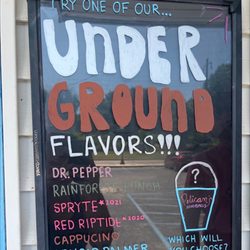 TRY ONE OF OUR...
UNDER
GROUND
FLAVORS!!!
DR. PEPPER
SPRYTE *2021
RED RIPTIDE *2020
CAPPUCINO
PALMER
?
Pelican's
WHICH WILL
YOU CHOOSE?